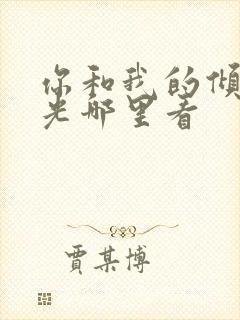 你和我的倾
光哪里看
贾某博